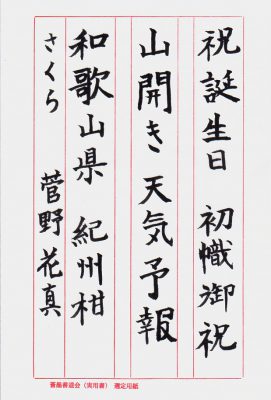 祝誕生日 初幟御祝
山開き 天気予報
和歌山県 紀州柑
さくら 菅野花真
書品書道会（実用書） 選定用紙